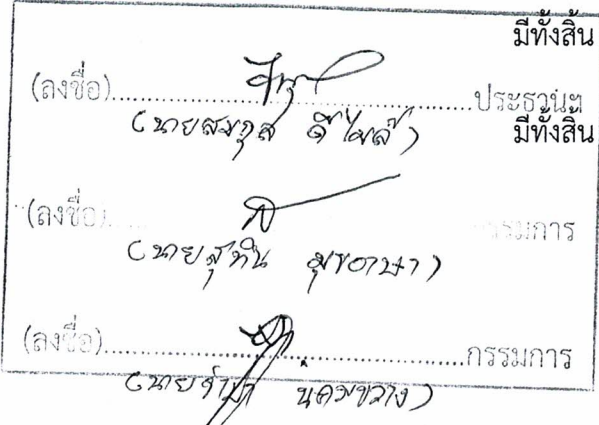 มีทั้งสิ้น
(ลงชื่อ)....................................................ประธานฯ
(นายสมกุล ดีไพล้)
มีทั้งสิ้น
(ลงชื่อ)กรรมการ
(นายสุทิน มุขอาษา)
(ลงชื่อ)....................................................กรรมการ
(นาย นคมขวาง)